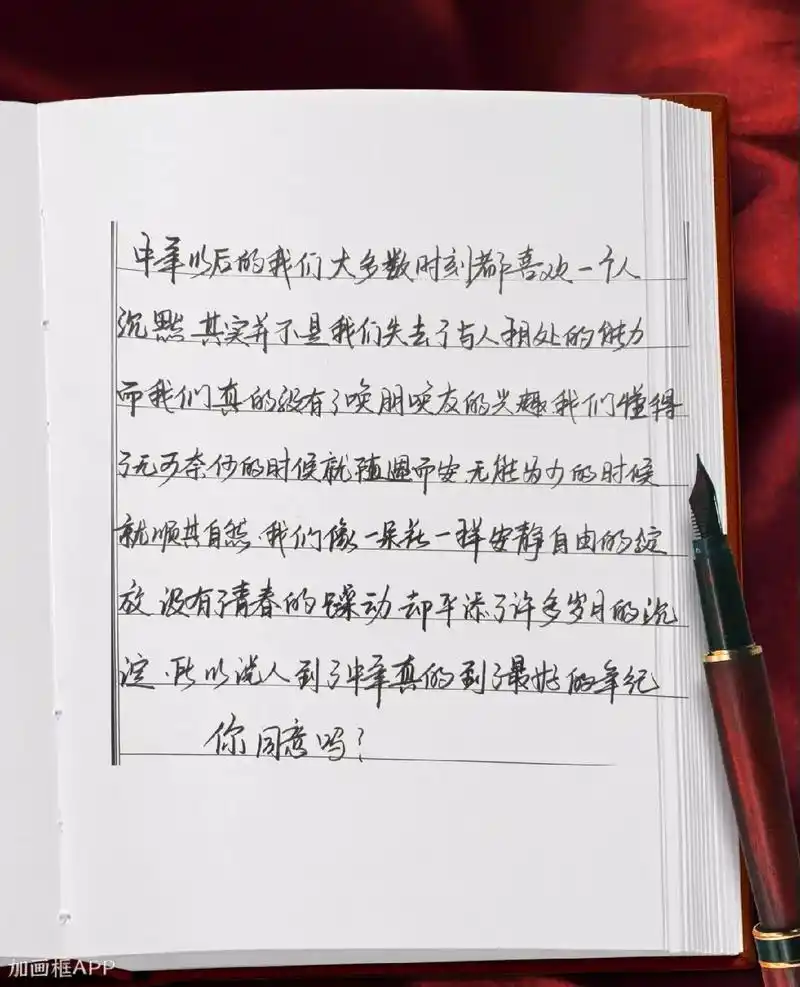 中年以后的我们大多数时刻都喜欢一个人
沉默.其实并不是我们失去了与人相处的能力
而我们真的没有了唤朋唤友的兴趣.我们懂得
了无可奈何的时候就随遇而安.无能为力的时候
就顺其自然.我们像一朵花一样安静自由的绽
放.没有了青春的躁动.却平添了许多岁月的沉
淀.所以说人到了中年真的到了最好的年纪
你同意吗?
加画框APP